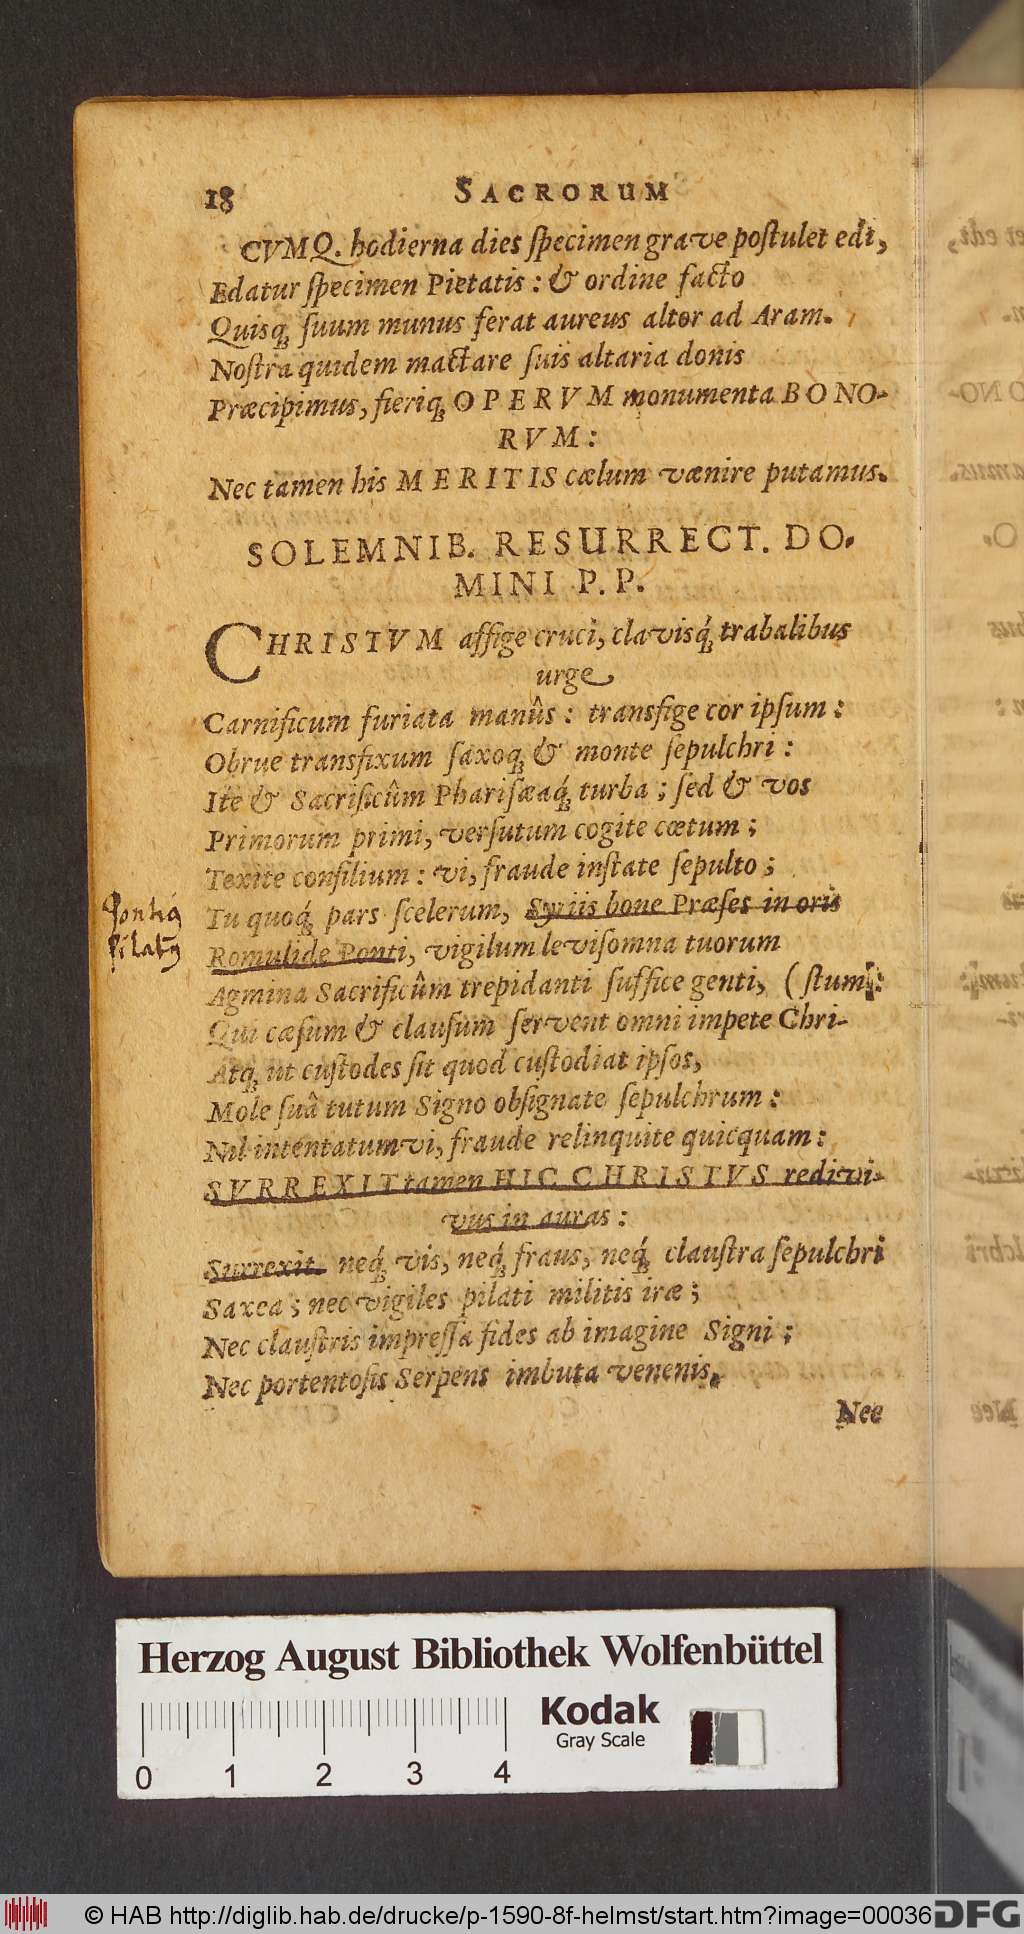 18 SACRORUM
CVMQ. hodierna dies ſpecimen grave poſtulet edi,
Edatur ſpecimen Pietatis: & ordine facto
Quisq; ſuum munus ferat aureus altor ad Aram.
Noſtra quidem mactare ſuis altaria donis
Præcipimus, fieriq; OPERVM monumenta BONO-
RVM:
Nec tamen his MERITIS cælum vænire putamus.
SOLEMNIB. RESURRECT. DO.
MINI P. P.
CHRISTVM affige cruci, clavisq́; trabalibus
urge
Carnificum furiata manûs: transfige cor ipſum:
Obrue transfixum ſaxoq; & monte ſepulchri:
Ite & Sacrificûm Phariſæaq́; turba; ſed & vos
Primorum primi, verſutum cogite cœtum;
Texite conſilium: vi, fraude inſtate ſepulto;
Tu quoq́; pars ſcelerum, Syriis bone Præſes in oris
Pontiꝰ
Pilatꝰ
Romulide Ponti, vigilum leviſomna tuorum
Agmina Sacrificûm trepidanti ſuffice genti, (ſtum:
Qui cæſum & clauſum ſervent omni impete Chri-
Atq; ut cuſtodes ſit quod cuſtodiat ipſos,
Mole ſuâ tutum Signo obſignate ſepulchrum:
Nil intentatum vi, fraude relinquite quicquam:
SVRREXIT tamen HIC CHRISTVS redivi-
vus in auras:
Surrexit. neq́; vis, neq́; fraus, neq́; clauſtra ſepulchri
Saxea; nec vigiles pilati militis iræ;
Nec clauſtris impreſſa fides ab imagine Signi;
Nec portentoſis Serpens imbuta venenis.
Nec
Herzog August Bibliothek Wolfenbüttel
Kodak
Gray Scale
0 1 2 3 4
© HAB http://diglib.hab.de/drucke/p-1590-8f-helmst/start.htm?image=00036
DFG